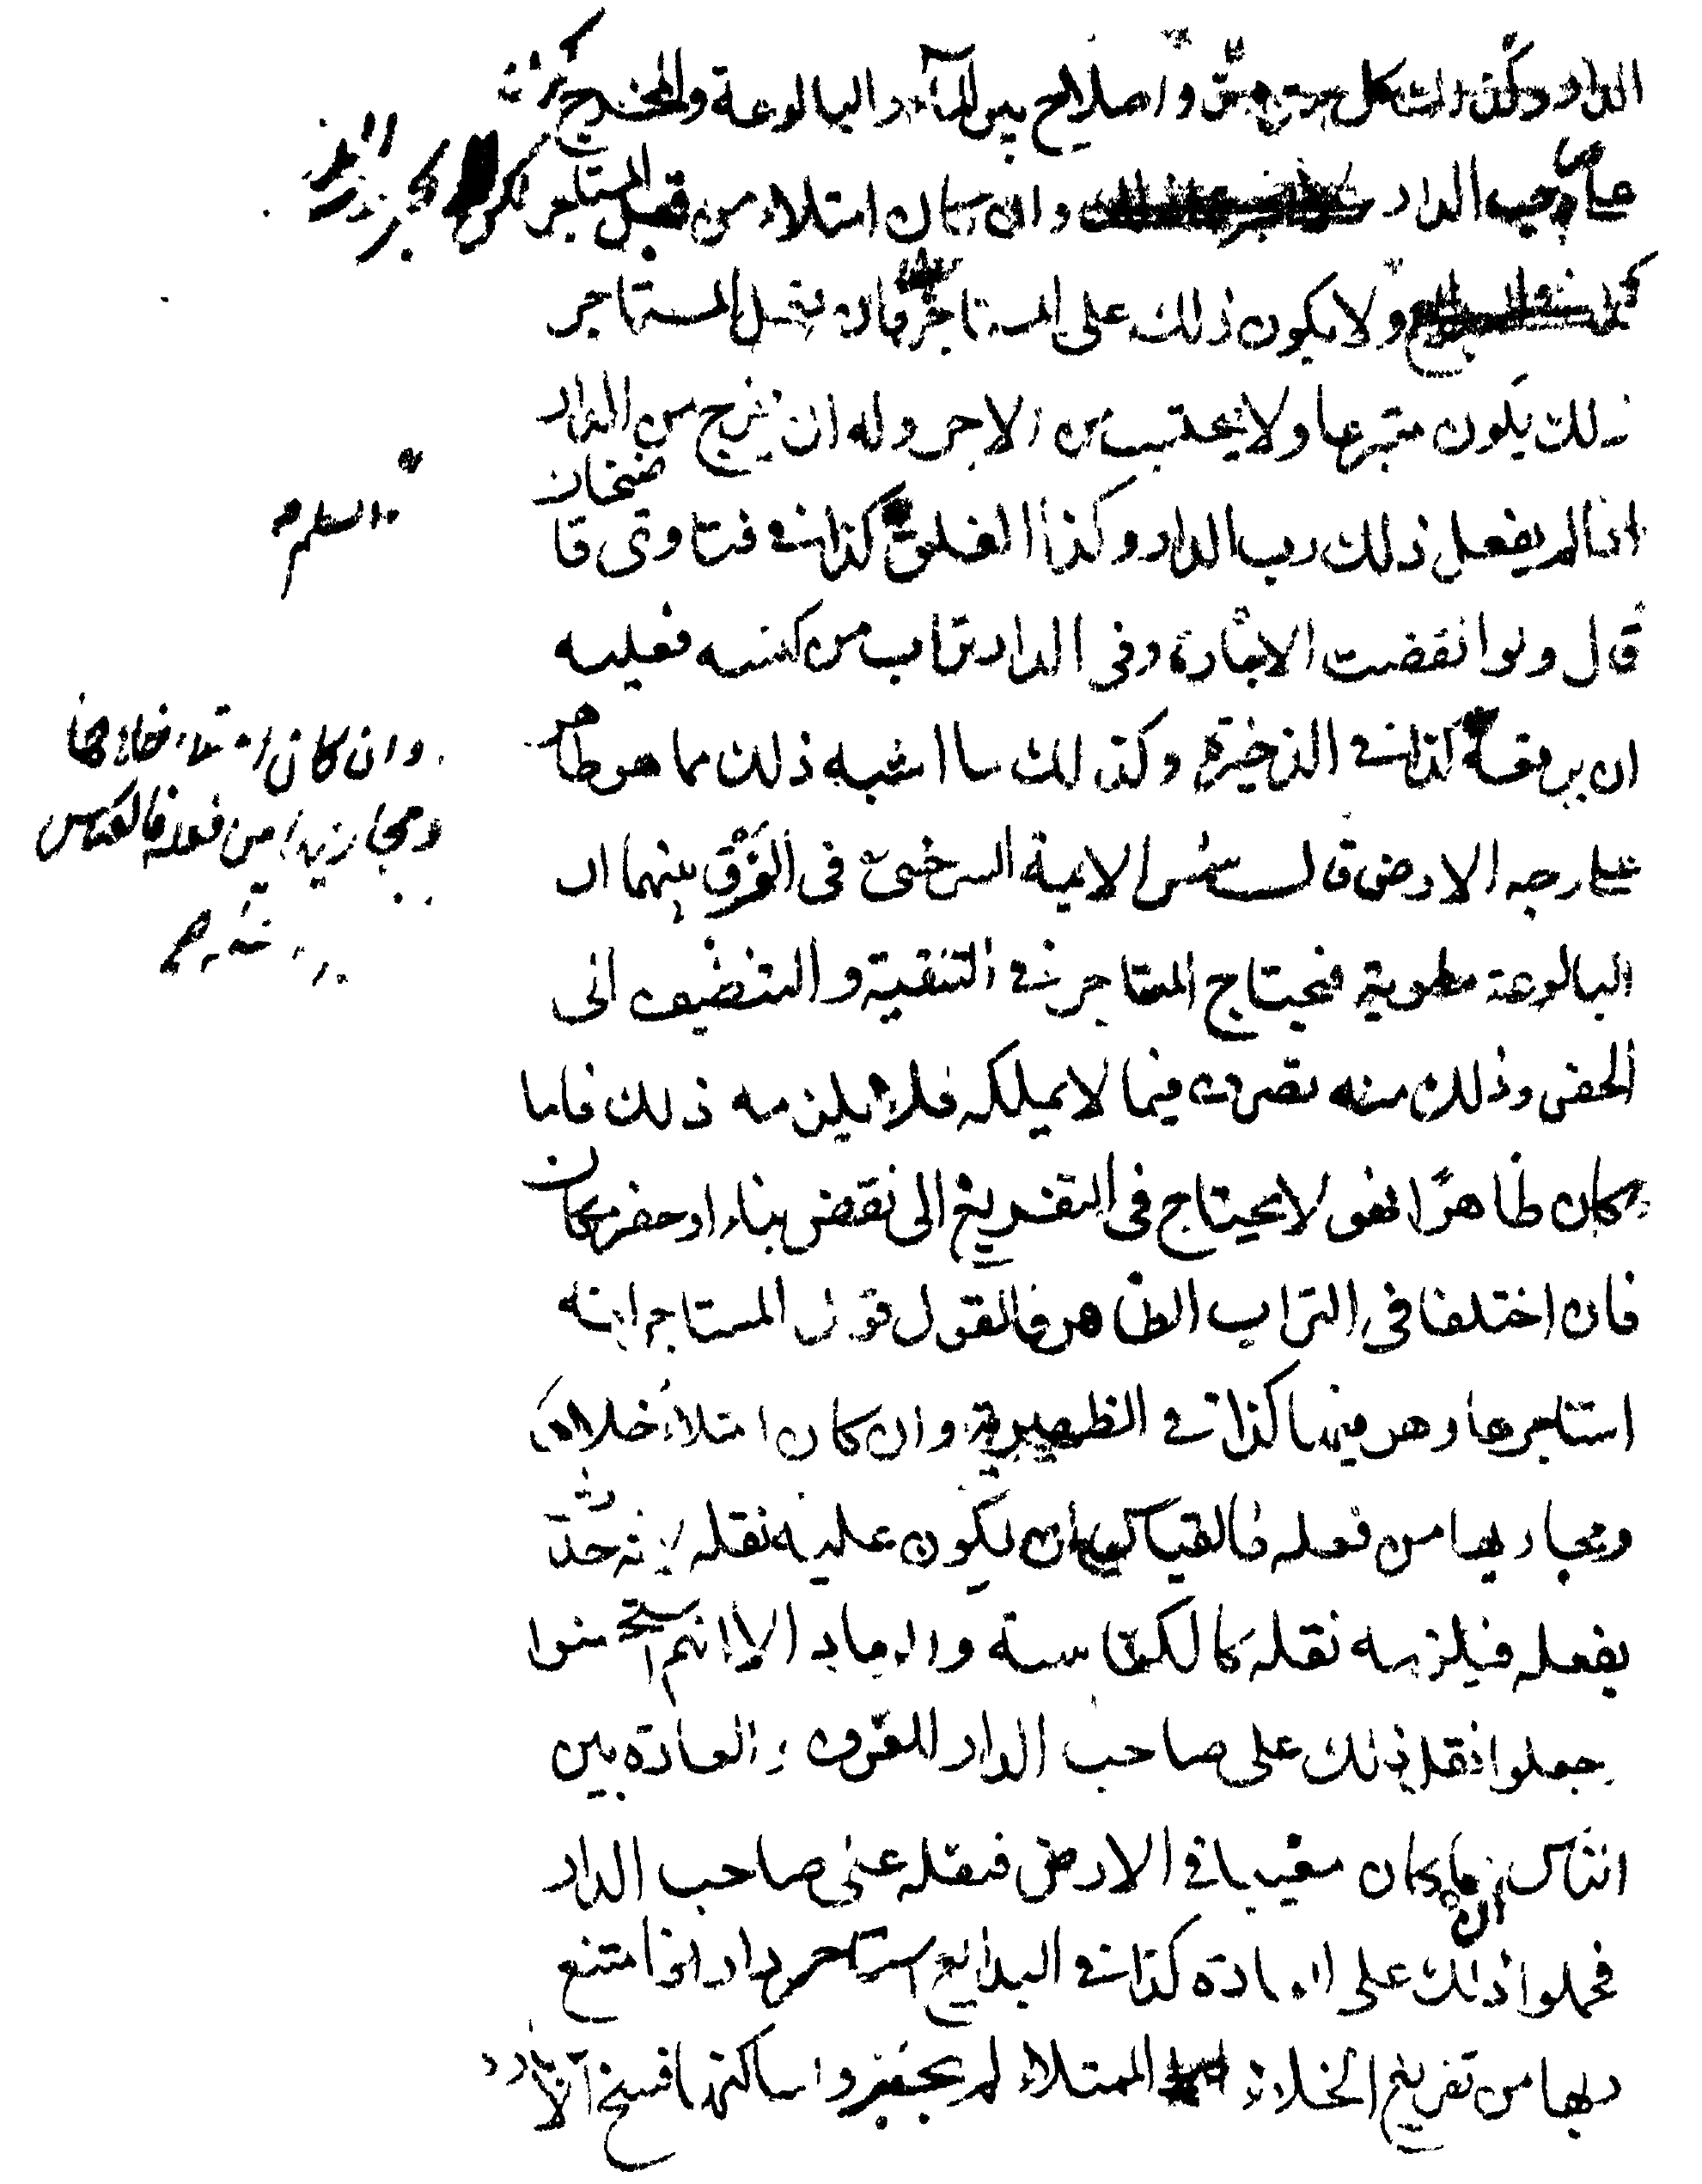 الدار وكذلك كل واصلاح بير الماء والبالوعة والمخرج
على صاحب الدار وان كان امتلاء من قبل المستاجر لكن
ولا يكون ذلك على المستاجر فان فعل المستاجر
ذلك يكون متبرعا ولا يحتسب من الاجر وله ان يخرج من الدار
اذا لم يفعل ذلك رب الدار وكذا الغلق كذا في فتاوى قاضيخان
قال ولو انقضت الاجارة وفي الدار تراب من كنسه فعليه
ان يرفعه كذا في الذخيرة وكذلك ما اشبه ذلك مما هو ظاهر
على وجه الارض قال شمس الايمة السرخسي في الفرق بينهما ان
البالوعة مطوية فيحتاج المستاجر في التنقية والتنضيف الى
الحفر وذلك منه تصرف فيما لا يملكه فلا يلزمه ذلك فاما
كان ظاهرا فهو لا يحتاج في التفريغ الى نقض بناء او حفر مكان
فان اختلفا في التراب الظاهر فالقول قول المستاجر انه
استاجرها وهو فيها كذا في الظهيرية وان كان امتلاء خلاها
ومجاريها من فعله فالقياس ان يكون عليه نقله لانه حدث
بفعله فيلزمه نقله كالكناسة والرماد الا انهم استحسنوا
جعلوا نقل ذلك على صاحب الدار للعرف والعادة بين
الناس ان ما كان مغيبا في الارض فنقله على صاحب الدار
فحملوا ذلك على العادة كذا في البدايع استاجر دارا فامتنع
ربها من تفريغ الخلاء الممتلاء لم يجبر واساكنها فسخ
والسلم
وان كان امتلاء خلاها
ومجاريها من فعله فالقياس